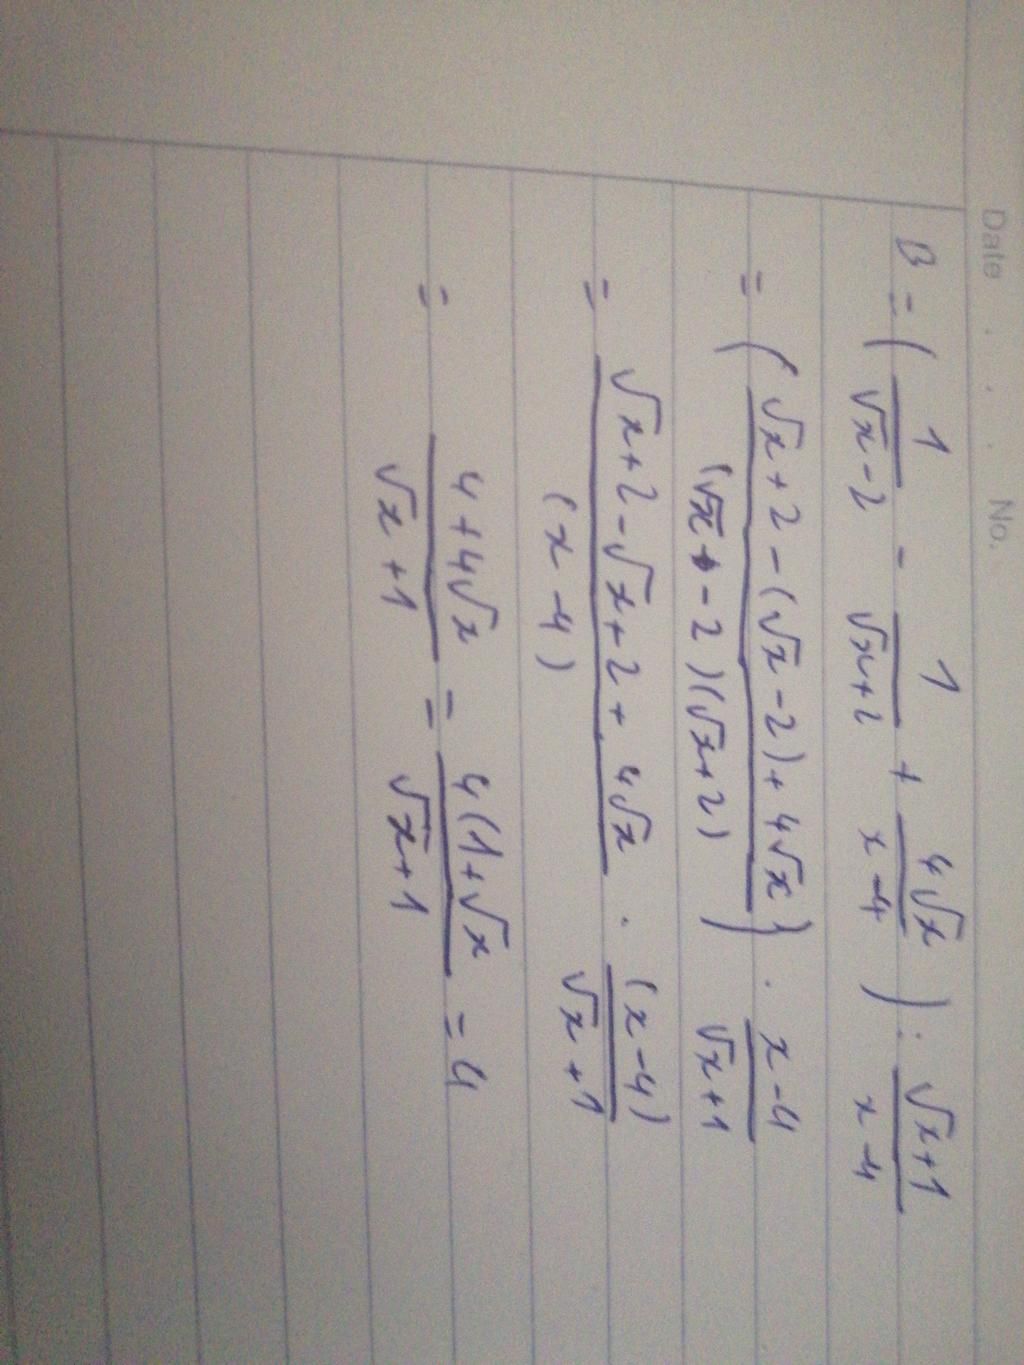 Date . . . No.
B = ( 1/(√x-2) - 1/(√x+2) + 4√x/(x-4) ) : (√x+1)/(x-4)
= ( (√x+2-(√x-2)+4√x)/((√x-2)(√x+2)) ) . (x-4)/(√x+1)
= (√x+2-√x+2+4√x)/(x-4) . (x-4)/(√x+1)
= (4+4√x)/(√x+1) = 4(1+√x/(√x+1) = 4